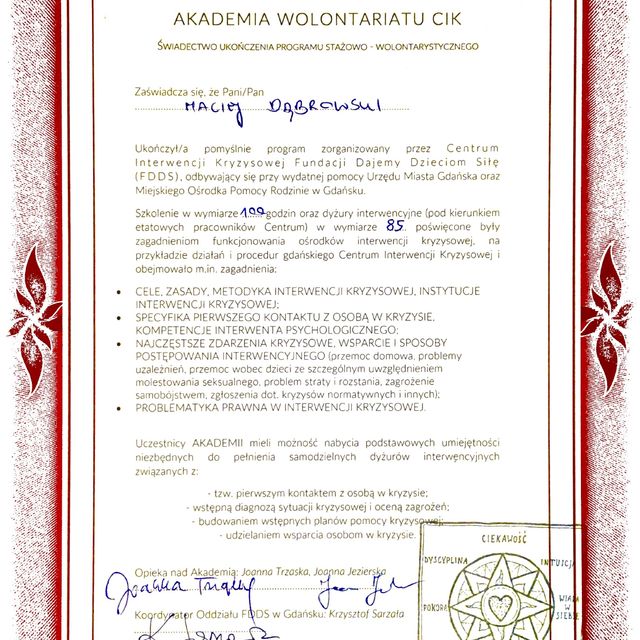 AKADEMIA WOLONTARIATU CIK
ŚWIADECTWO UKOŃCZENIA PROGRAMU STAŻOWO - WOLONTARYSTYCZNEGO
Zaświadcza się, że Pani/Pan
MACIEJ DĄBROWSKI
Ukończył/a pomyślnie program zorganizowany przez Centrum
Interwencji Kryzysowej Fundacji Dajemy Dzieciom Siłę
(FDDS), odbywający się przy wydatnej pomocy Urzędu Miasta Gdańska oraz
Miejskiego Ośrodka Pomocy Rodzinie w Gdańsku.
Szkolenie w wymiarze 100 godzin oraz dyżury interwencyjne (pod kierunkiem
etatowych pracowników Centrum) w wymiarze 85. poświęcone były
zagadnieniom funkcjonowania ośrodków interwencji kryzysowej, na
przykładzie działań i procedur gdańskiego Centrum Interwencji Kryzysowej i
obejmowało m.in. zagadnienia;
• CELE, ZASADY, METODYKA INTERWENCJI KRYZYSOWEJ, INSTYTUCJE
INTERWENCJI KRYZYSOWEJ;
• SPECYFIKA PIERWSZEGO KONTAKTU Z OSOBĄ W KRYZYSIE,
KOMPETENCJE INTERWENTA PSYCHOLOGICZNEGO;
• NAJCZĘSTSZE ZDARZENIA KRYZYSOWE, WSPARCIE I SPOSOBY
POSTĘPOWANIA INTERWENCYJNEGO (przemoc domowa, problemy
uzależnień, przemoc wobec dzieci ze szczególnym uwzględnieniem
molestowania seksualnego, problem straty i rozstania, zagrożenie
samobójstwem, zgłoszenia dot. kryzysów normatywnych i innych);
• PROBLEMATYKA PRAWNA W INTERWENCJI KRYZYSOWEJ.
Uczestnicy AKADEMII mieli możność nabycia podstawowych umiejętności
niezbędnych do pełnienia samodzielnych dyżurów interwencyjnych
związanych z:
- tzw. pierwszym kontaktem z osobą w kryzysie;
- wstępną diagnozą sytuacji kryzysowej i oceną zagrożeń;
- budowaniem wstępnych planów pomocy kryzysowej;
- udzielaniem wsparcia osobom w kryzysie.
CIEKAWOŚĆ
DYSCYPLINA
INTUICJA
Opieka nad Akademią: Joanna Trzaska, Joanna Jezierska
Joanna
POKORA
WIARA
W
SIEBIE
Koordynator Oddziału FDDS w Gdańsku: Krzysztof Sarzała